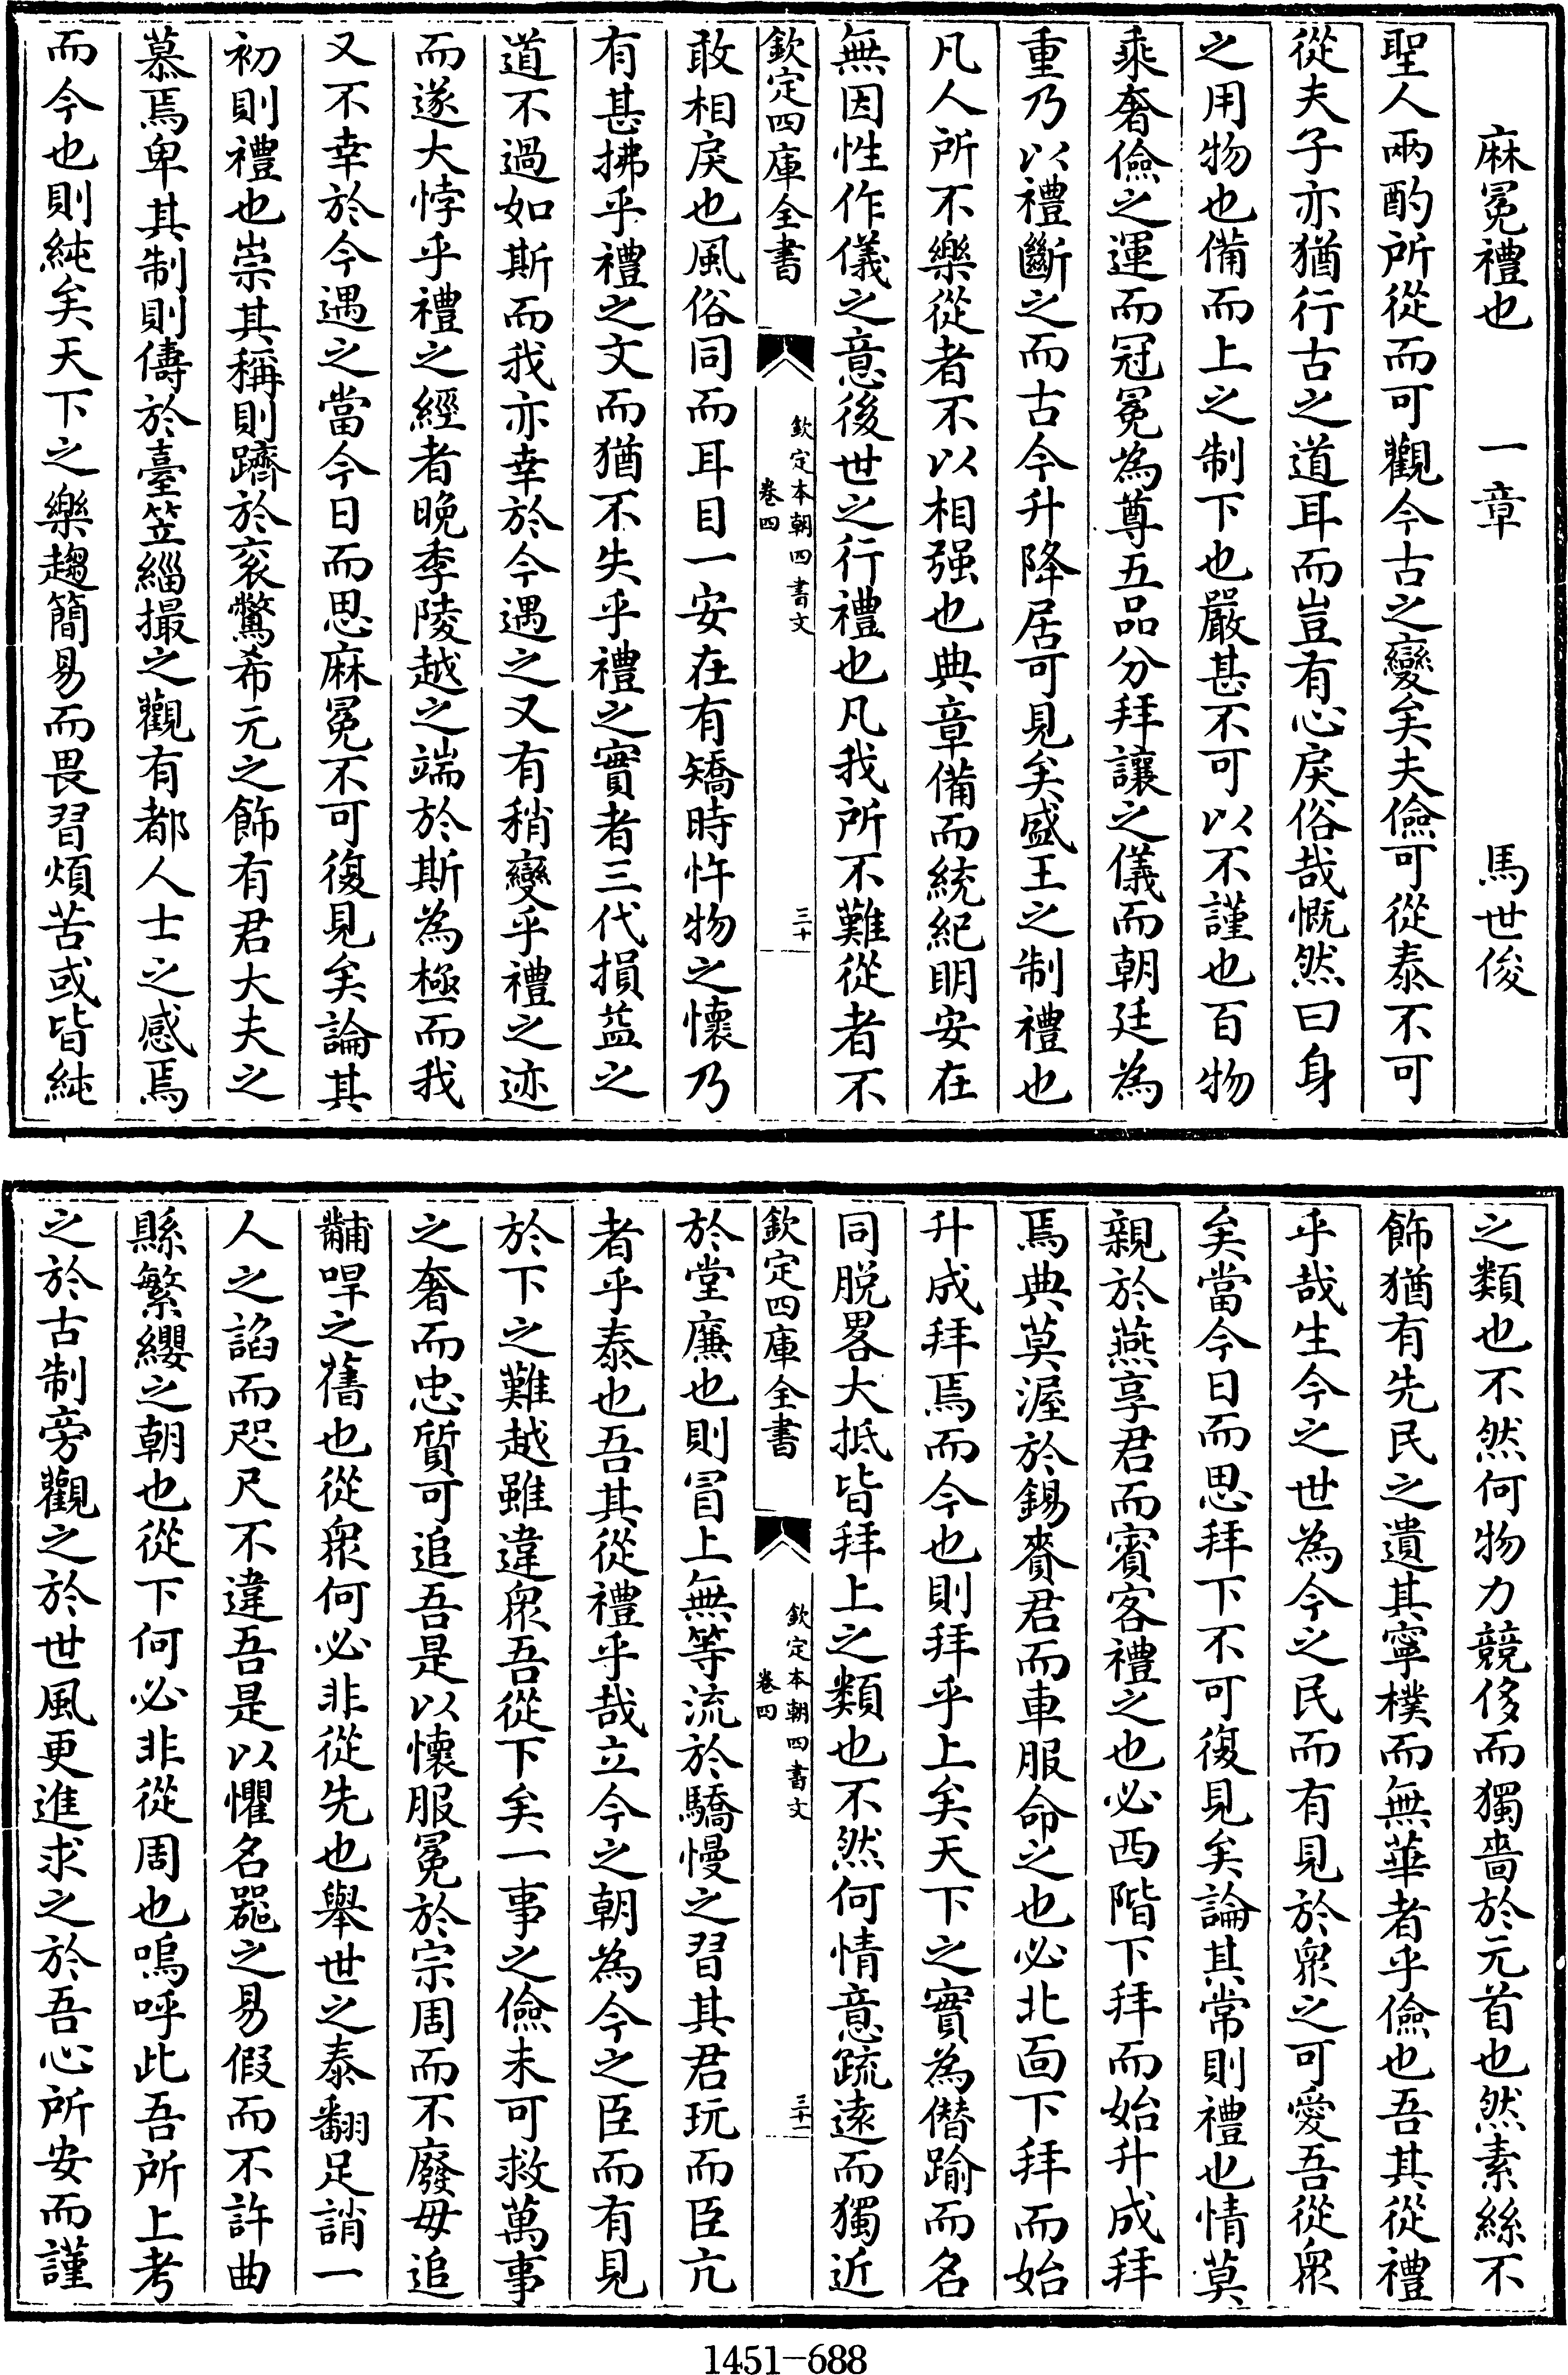 麻冕禮也　一章　馬世俊
聖人兩酌所從而可觀今古之變矣夫儉可從泰不可
從夫子亦猶行古之道耳而豈有心戾俗哉慨然曰身
之用物也備而上之制下也嚴甚不可以不謹也百物
乘奢儉之運而冠冕為尊五品分拜讓之儀而朝廷為
重乃以禮斷之而古今升降居可見矣盛王之制禮也
凡人所不樂從者不以相强也典章備而統紀明安在
無因性作儀之意後世之行禮也凡我所不難從者不
欽定四庫全書
欽定本朝四書文
卷四
三十
敢相戾也風俗同而耳目一安在有矯時忤物之懷乃
有甚拂乎禮之文而猶不失乎禮之實者三代損益之
道不過如斯而我亦幸於今遇之又有稍變乎禮之迹
而遂大悖乎禮之經者晚季陵越之端於斯為極而我
又不幸於今遇之當今日而思麻冕不可復見矣論其
初則禮也崇其稱則躋於衮鷩希元之飾有君大夫之
慕焉卑其制則儔於臺笠緇撮之觀有都人士之感焉
而今也則純矣天下之樂趨簡易而畏習煩苦或皆純
之類也不然何物力競侈而獨嗇於元首也然素絲不
飾猶有先民之遺其寧樸而無華者乎儉也吾其從禮
乎哉生今之世為今之民而有見於衆之可愛吾從衆
矣當今日而思拜下不可復見矣論其常則禮也情莫
親於燕享君而賓客禮之也必西階下拜而始升成拜
焉典莫渥於錫賚君而車服命之也必北面下拜而始
升成拜焉而今也則拜乎上矣天下之實為僭踰而名
同脱畧大抵皆拜上之類也不然何情意疏遠而獨近
欽定四庫全書
欽定本朝四書文
卷四
三十一
於堂廉也則冒上無等流於驕慢之習其君玩而臣亢
者乎泰也吾其從禮乎哉立今之朝為今之臣而有見
於下之難越雖違衆吾從下矣一事之儉未可救萬事
之奢而忠質可追吾是以懷服冕於宗周而不廢毋追
黼冔之舊也從衆何必非從先也舉世之泰翻足誚一
人之諂而咫尺不違吾是以懼名器之易假而不許曲
縣繁纓之朝也從下何必非從周也嗚呼此吾所上考
之於古制旁觀之於世風更進求之於吾心所安而謹
1451-688